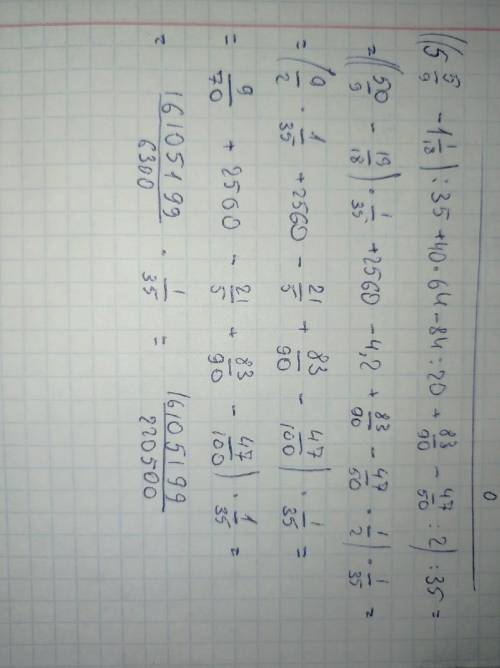 0
((5 5/9 - 1 1/18) : 35 + 40 · 64 - 84 : 20 + 83/90 - 47/50 : 2) : 35 =
= ((50/9 - 19/18) · 1/35 + 2560 - 4,2 + 83/90 - 47/50 · 1/2) · 1/35 =
= (9/2 · 1/35 + 2560 - 21/5 + 83/90 - 47/100) · 1/35 =
= 9/70 + 2560 - 21/5 + 83/90 - 47/100) · 1/35 =
= 16105199/6300 · 1/35 = 16105199/220500